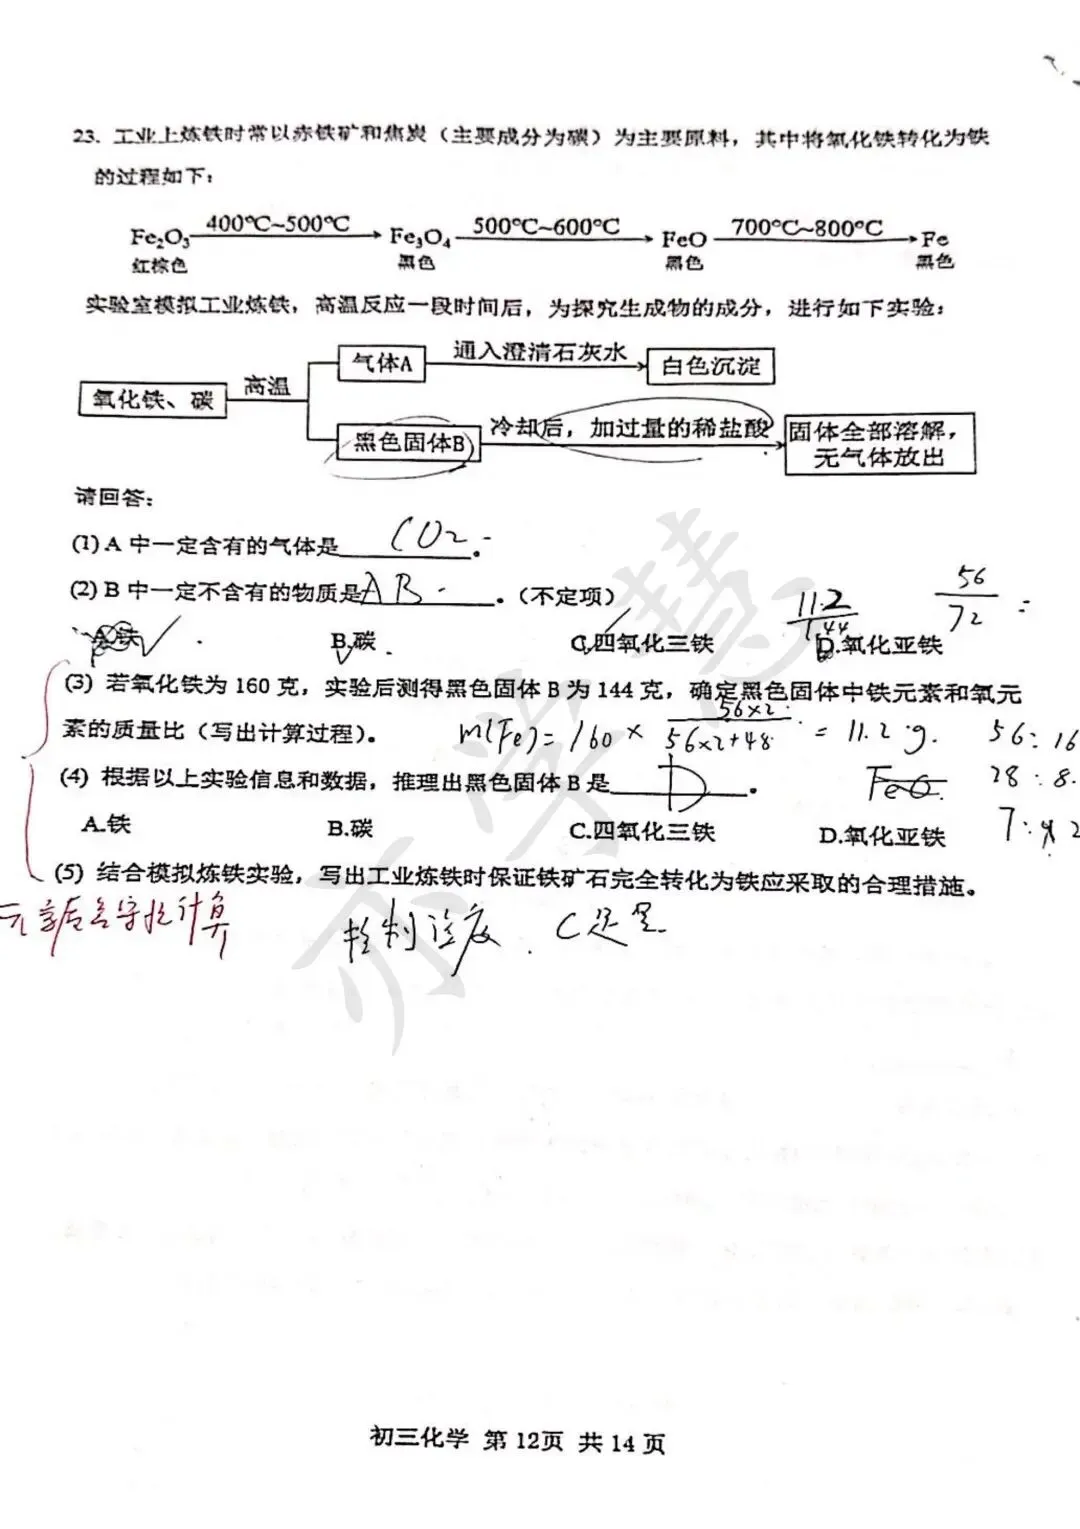 23. 工业上炼铁时常以赤铁矿和焦炭（主要成分为碳）为主要原料，其中将氧化铁转化为铁
的过程如下：
Fe₂O₃ 400℃~500℃ Fe₃O₄ 500℃~600℃ FeO 700℃~800℃ Fe
红棕色 黑色 黑色 黑色
实验室模拟工业炼铁，高温反应一段时间后，为探究生成物的成分，进行如下实验：
气体A 通入澄清石灰水 白色沉淀
氧化铁、碳 高温
黑色固体B 冷却后，加过量的稀盐酸 固体全部溶解，
无气体放出
请回答：
(1) A 中一定含有的气体是 CO₂ 。
(2) B 中一定不含有的物质是 AB 。（不定项）
11.2/144 56/72 =
A.铁 B.碳 C.四氧化三铁 D.氧化亚铁
(3) 若氧化铁为 160 克，实验后测得黑色固体 B 为 144 克，确定黑色固体中铁元素和氧元
素的质量比（写出计算过程）。 m(Fe)= 160 × 56×2/56×2+48 = 11.2 g. 56:16
(4) 根据以上实验信息和数据，推理出黑色固体 B 是 D 。 FeO. 28:8.
A.铁 B.碳 C.四氧化三铁 D.氧化亚铁 7:2
(5) 结合模拟炼铁实验，写出工业炼铁时保证铁矿石完全转化为铁应采取的合理措施。
控制温度. C足
计算
亦学慧
初三化学 第 12页 共 14 页